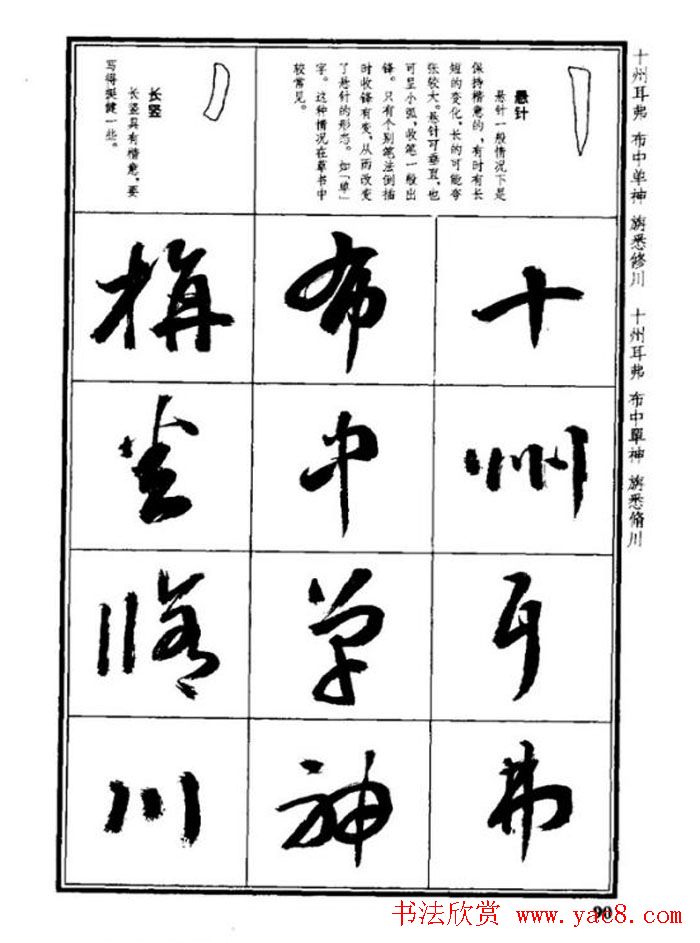 十州耳弗 布中单神 旗悉修川 十州耳弗 布中單神 旗悉脩川
悬针
悬针一般情况下是
保持楷意的，有时有长
短的变化，长的可能夸
张较大。悬针可垂直，也
可呈小弧，收笔一般出
锋。只有个别笔法倒插
时收锋有变，从而改变
了悬针的形态。如「单」
字。这种情况在草书中
较常见。
长竖
长竖具有楷意，要
写得挺健一些。
十州耳弗
布中單神
旗悉脩川
90
书法欣赏 www.yac8.com